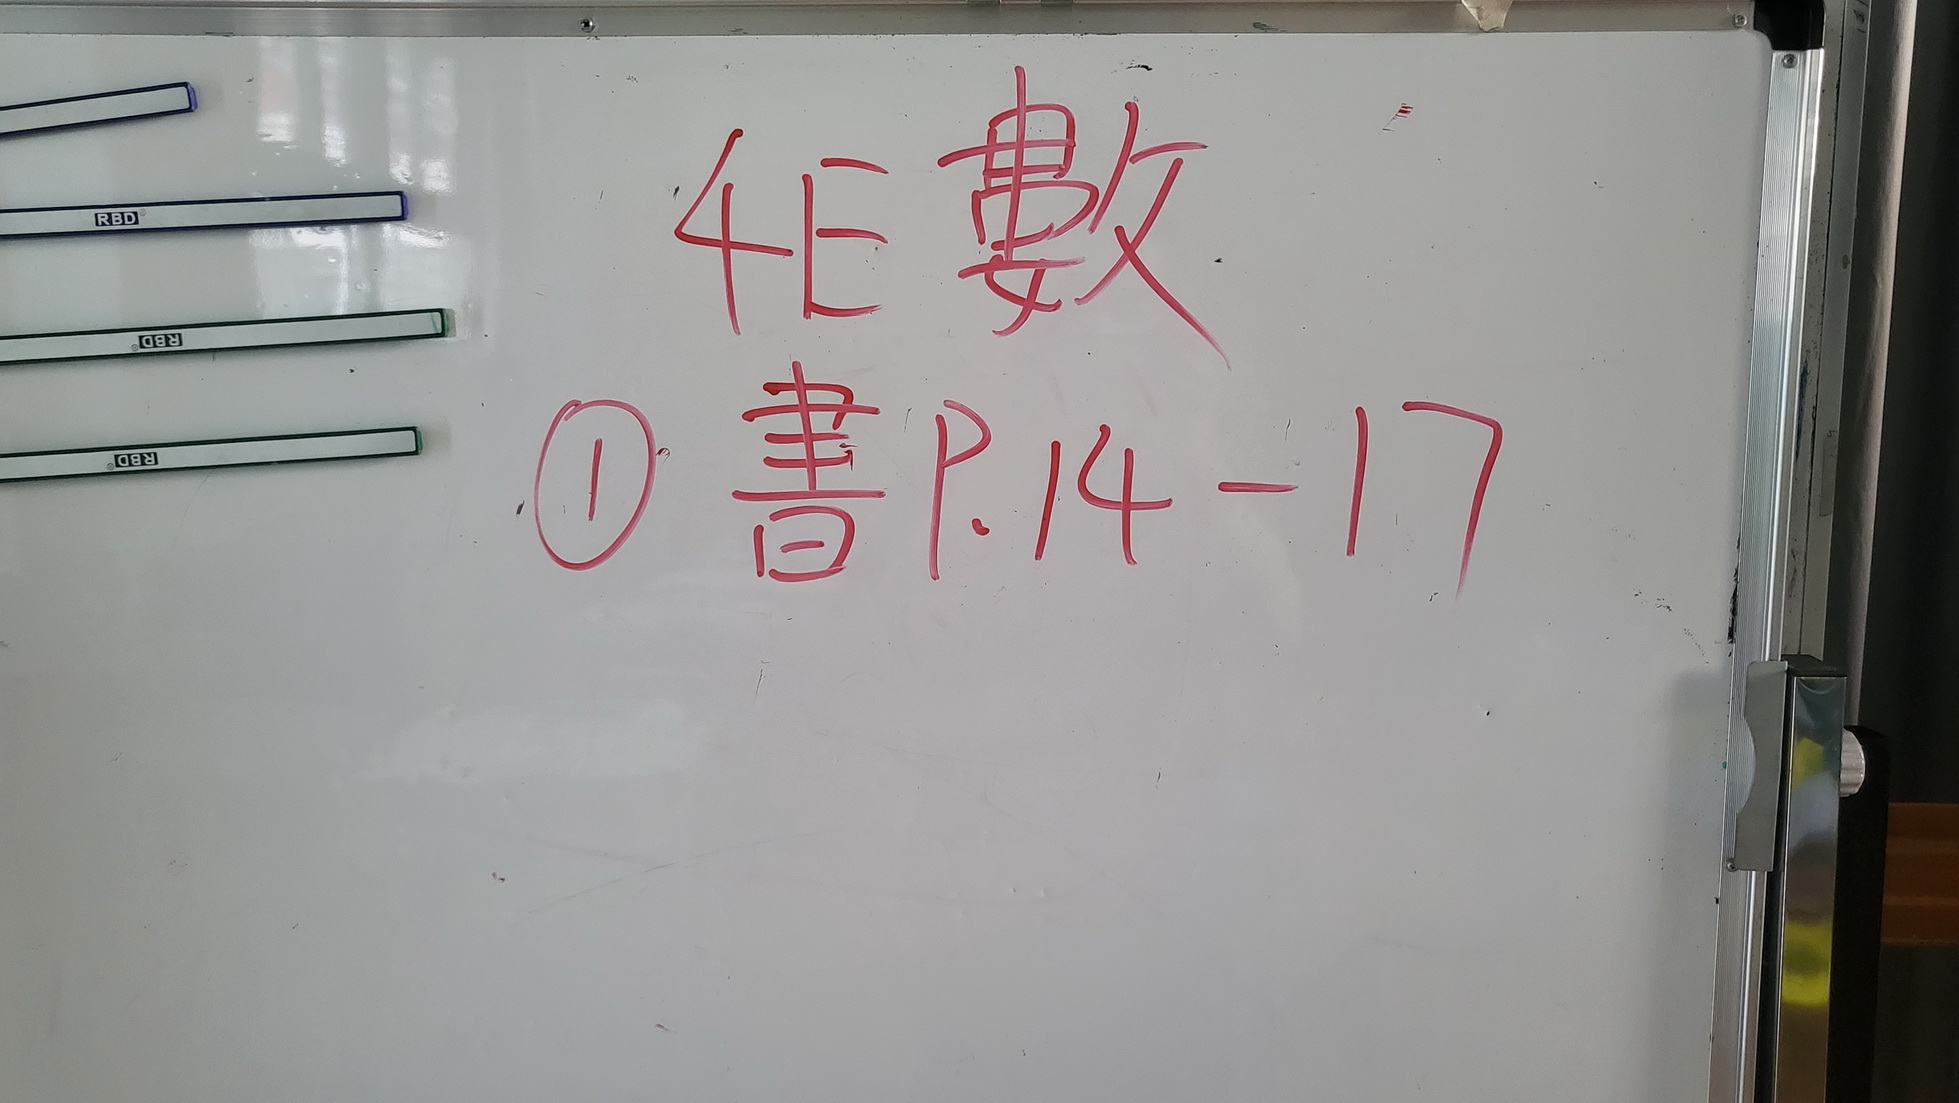 4E 數
① 書 P.14-17
RBD
RBD
RBD